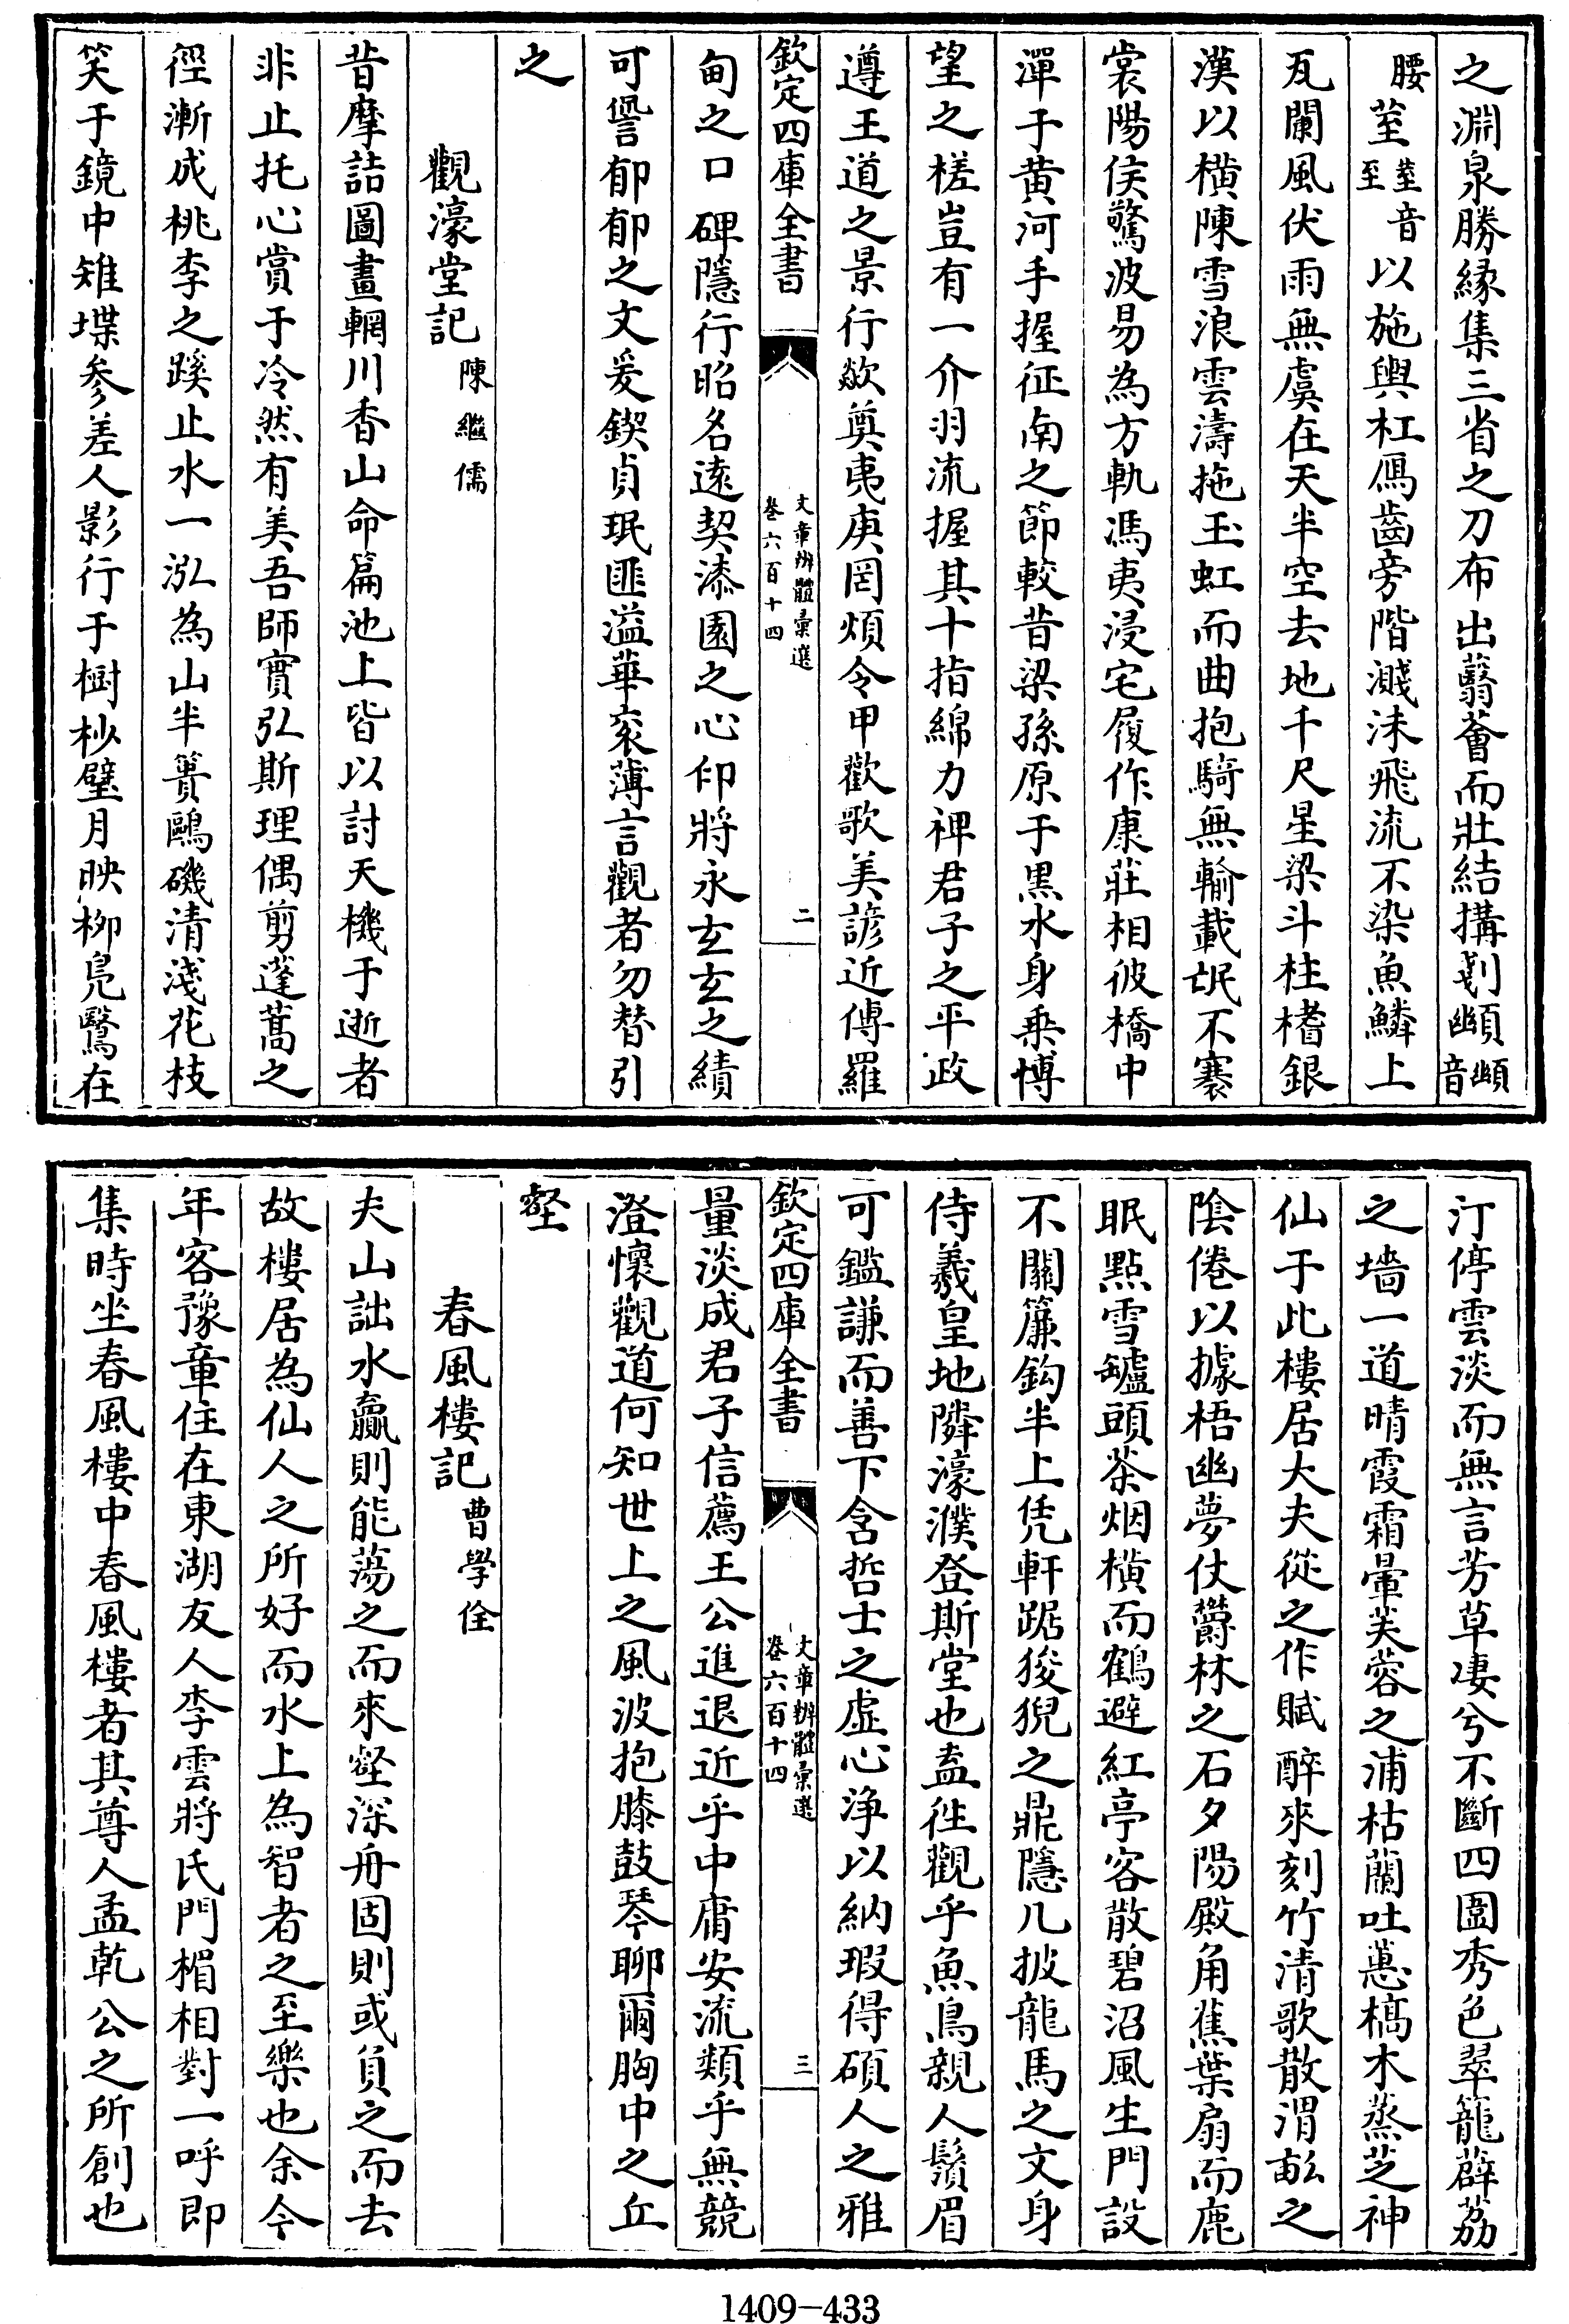 之淵泉勝緣集三省之刀布出蘙薈而壯結搆剗㘭㘭音
腰荎荎音至以施輿杠鴈齒旁階濺沫飛流不染魚鱗上
瓦闌風伏雨無虞在天半空去地千尺星梁斗柱楮銀
漢以橫陳雪浪雲濤拖玉虹而曲抱騎無輸載氓不褰
裳陽侯驚波易為方軌馮夷浸宅履作康莊相彼橋中
潬于黃河手握征南之節較昔梁孫原于黑水身乘博
望之槎豈有一介羽流握其十指綿力裨君子之平政
遵王道之景行歘奠夷庚罔煩令甲歡歌美諺近傳羅
欽定四庫全書
文章辨體彙選
卷六百十四
二
甸之口碑隱行昭名遠契漆園之心印將永玄玄之績
可譽郁郁之文爰鍥貞珉匪溢華衮薄言觀者勿替引
之
觀濠堂記 陳繼儒
昔摩詰圖畫輞川香山命篇池上皆以討天機于逝者
非止托心賞于冷然有美吾師實弘斯理偶剪蓬蒿之
徑漸成桃李之蹊止水一泓為山半簣鷗磯清淺花枝
笑于鏡中雉堞參差人影行于樹杪璧月映柳鳧鷖在
汀停雲淡而無言芳草淒兮不斷四圍秀色翠籠薜荔
之墻一道晴霞霜暈芙蓉之浦枯蘭吐蕙槁木蒸芝神
仙于此樓居大夫從之作賦醉來刻竹清歌散渭畝之
陰倦以據梧幽夢仗欝林之石夕陽殿角蕉葉扇而鹿
眠點雪罏頭茶烟橫而鶴避紅亭客散碧沼風生門設
不關簾鈎半上凭軒踞狻猊之鼎隱几披龍馬之文身
侍羲皇地隣濠濮登斯堂也盍徃觀乎魚鳥親人鬚眉
可鑑謙而善下含哲士之虛心淨以納瑕得碩人之雅
欽定四庫全書
文章辨體彙選
卷六百十四
三
量淡成君子信薦王公進退近乎中庸安流類乎無競
澄懷觀道何知世上之風波抱膝鼓琴聊爾胸中之丘
壑
春風樓記 曹學佺
夫山詘水贏則能蕩之而來壑深舟固則或負之而去
故樓居為仙人之所好而水上為智者之至樂也余今
年客豫章住在東湖友人李雲將氏門楣相對一呼即
集時坐春風樓中春風樓者其尊人孟乾公之所創也
1409-433